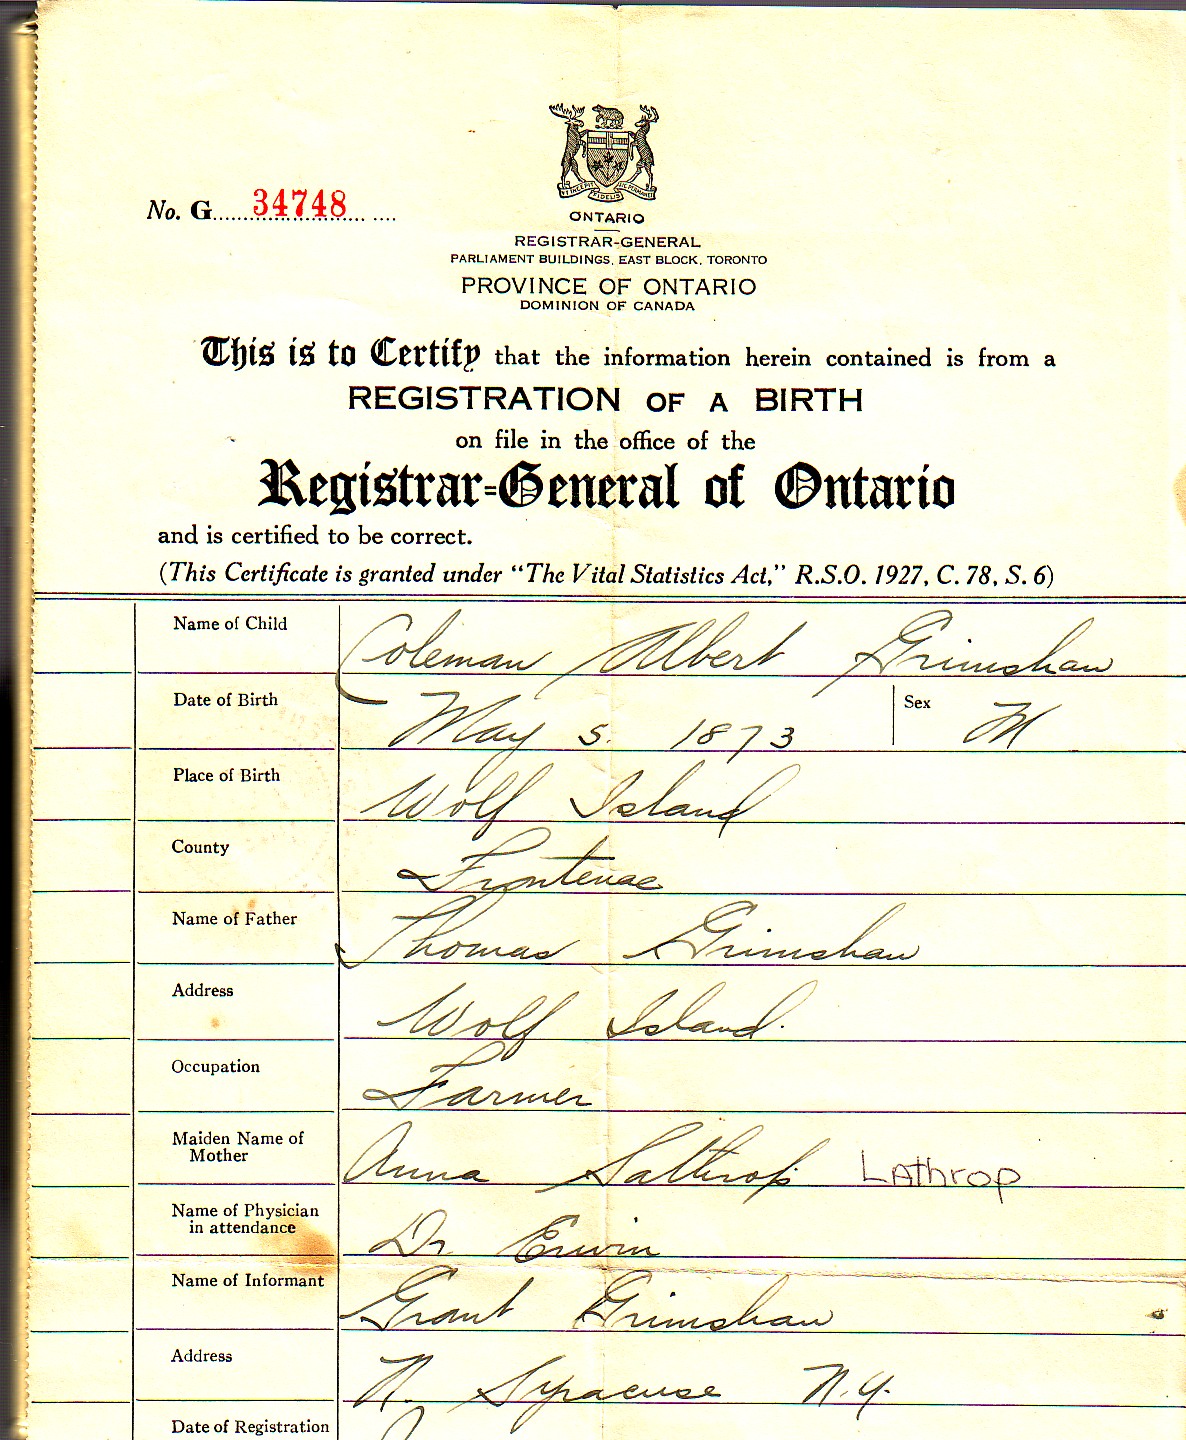 No. G 34748
ONTARIO
REGISTRAR-GENERAL
PARLIAMENT BUILDINGS, EAST BLOCK, TORONTO
PROVINCE OF ONTARIO
DOMINION OF CANADA
This is to Certify that the information herein contained is from a
REGISTRATION OF A BIRTH
on file in the office of the
Registrar-General of Ontario
and is certified to be correct.
(This Certificate is granted under "The Vital Statistics Act," R.S.O. 1927, C. 78, S. 6)
Name of Child Coleman Albert Grimshaw
Date of Birth May 5. 1873 Sex M
Place of Birth Wolf Island
County Frontenac
Name of Father Thomas Grimshaw
Address Wolf Island.
Occupation Farmer
Maiden Name of
Mother Anna Lathrop LAthrop
Name of Physician
in attendance Dr. Erwin
Name of Informant Grant Grimshaw
Address N. Syracuse N.Y.
Date of Registration